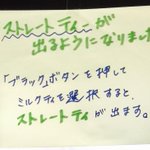 ストレートティーが
出るようになりました
「ブラック」ボタンを押して
ミルクティを選択すると、
ストレートティが出ます。